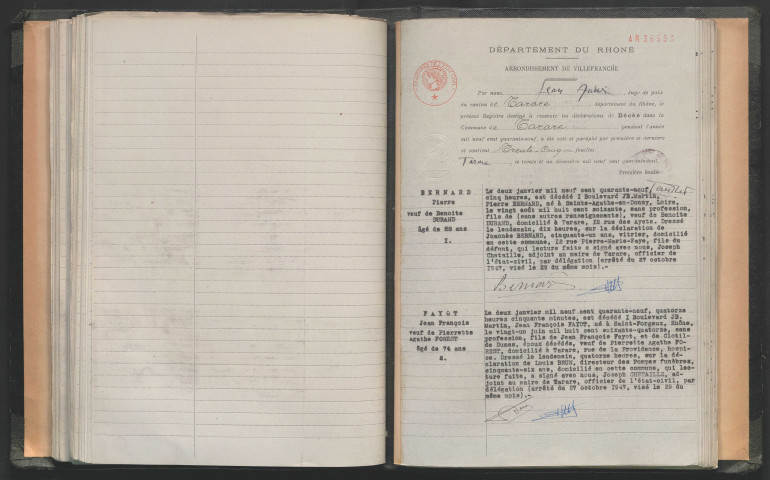 DÉPARTEMENT DU RHONE
ARRONDISSEMENT DE VILLEFRANCHE
Par nous, Jean Juge de paix
du canton de Tarare département du Rhône, le
présent Registre destiné à recevoir les déclarations de Décès dans la
Commune de Tarare pendant l'année
mil neuf cent quarante-neuf, a été coté et paraphé par première et dernière
et contient Trente-Cinq feuilles
Tarare le trente et un décembre mil neuf cent quarante-huit.
Première feuille
BERNARD
Pierre
veuf de Benoite
DURAND
âgé de 88 ans
1.
Le deux janvier mil neuf cent quarante-neuf,
cinq heures, est décédé 1 Boulevard JB.Martin,
Pierre BERNARD, né à Sainte-Agathe-en-Donzy, Loire,
le vingt août mil huit cent soixante, sans profession,
fils de (sans autres renseignements), veuf de Benoite
DURAND, domicilié à Tarare, 12 rue des Ayets. Dressé
le lendemain, dix heures, sur la déclaration de
Joannès BERNAND, cinquante-un ans, vitrier, domicilié
en cette commune, 12 rue Pierre-Marie-Faye, fils du
défunt, qui lecture faite a signé avec nous, Joseph
Chetaille, adjoint au maire de Tarare, officier de
l'état-civil, par délégation (arrêté du 27 octobre
1947, visé le 29 du même mois).-
FAYOT
Jean François
veuf de Pierrette
Agathe FOREST
âgé de 74 ans
2.
Le deux janvier mil neuf cent quarante-neuf, quatorze
heures cinquante minutes, est décédé 1 Boulevard JB.
Martin, Jean François FAYOT, né à Saint-Forgeux, Rhône,
le vingt-un juin mil huit cent soixante-quatorze, sans
profession, fils de Jean François Fayot, et de Clotil-
de Dumas, époux décédés, veuf de Pierrette Agathe FO-
REST, domicilié à Tarare, rue de la Providence, hospi-
ce. Dressé le lendemain, quatorze heures, sur la dé-
claration de Louis BRUN, directeur des Pompes funèbres,
cinquante-six ans, domicilié en cette commune, qui lec-
ture faite, a signé avec nous, Joseph CHETAILLE, ad-
joint au maire de Tarare, officier de l'état-civil, par
délégation (arrêté du 27 octobre 1947, visé le 29 du
même mois).-